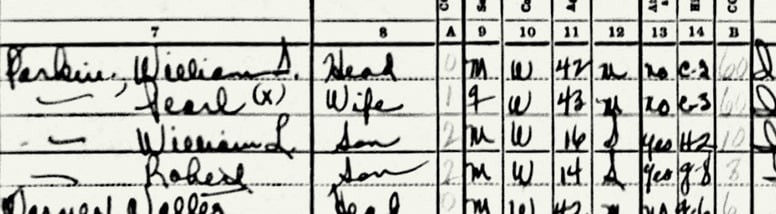 7 8 A 9 10 11 12 13 14 B
Perkins, William S. Head 0 M W 42 M no C-2 60
— Pearl (x) Wife 1 F W 43 M no C-3 60
— William L. Son 2 M W 16 S yes H2 10
— Robert Son 2 M W 14 S yes 8 8
Walter Head 0 M W 42